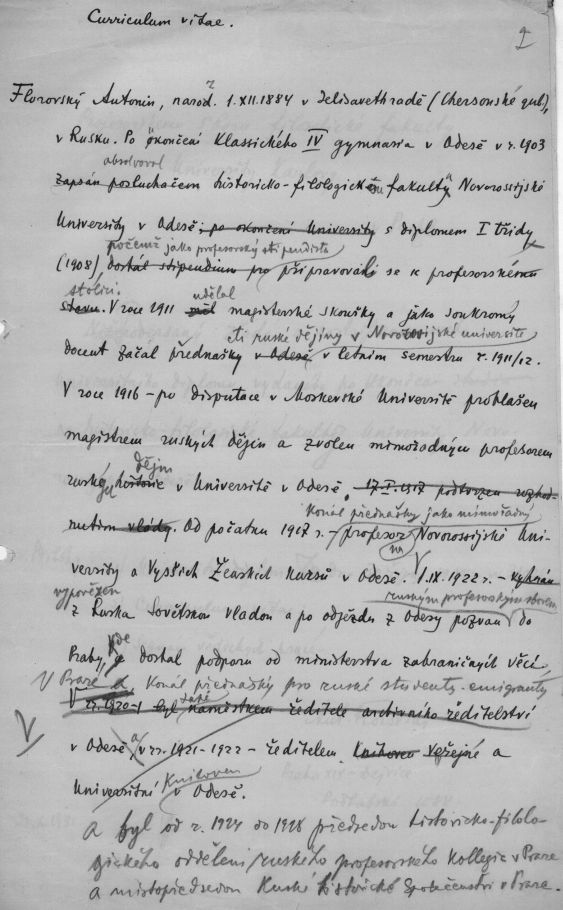 Curriculum vitae.
1
Florovský Antonín, narod. 1.XII.1884 v Jelisavethradě (Chersonské gub.),
v Rusku. Po ukončení Klassického IV gymnasia v Oděsě v r. 1903
absolvoval
zapsán posluchačem historicko-filologické fakulty Novorossijské
University v Oděsě; po okončení University s diplomem I třídy
počemž jako profesorský stipendista
(1908) dostal stipendium pro připravování se k profesorskému
stolici. udělal
stavu. V roce 1911 měl magisterské skoušky a jako soukromý
čti ruské dějiny v Novorossijské universitě
docent začal přednášky v Oděsě v letním semestru r. 1911/12.
V roce 1916 - po disputace v Moskevské Universitě prohlášen
magistrem ruských dějin a zvolen mimořádným profesorem
dějin
ruské historie v Universitě v Oděsě, 17.I.1917 potvrzen rozhod-
Konal přednášky jako mimořádný
nutím vlády. Od počatku 1917 r. - profesor Novorossijské Uni-
na
versity a Vysších Ženských Kursů v Oděsě. 1.IX.1922 r. - vyhnán
vypovězen ruským profesorským sborem
z Ruska Sovětskou vladou a po odjezdu z Oděsy pozván do
kde
Prahy, a dostal podporu od ministerstva zahraničných věcí
V Praze a Konal přednášky pro ruské studenty-emigranty
také
V rr. 1920-1 byl naměstkem ředitele archivního ředitelství
v Oděsě, a v rr. 1921-1922 - ředitelem Knihoven Veřejné a
Knihoven
Universitní v Oděsě.
a byl od r. 1924 do 1928 předsedou historicko-filolo-
gického oddělení ruského profesorského Kollegie v Praze
a místopředsedou Ruské historické společenství v Praze.